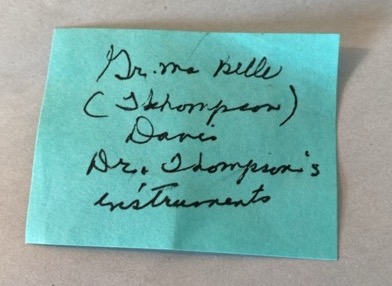 Gr. ma Belle
(Thompson)
Davis
Dr. Thompson's
instruments